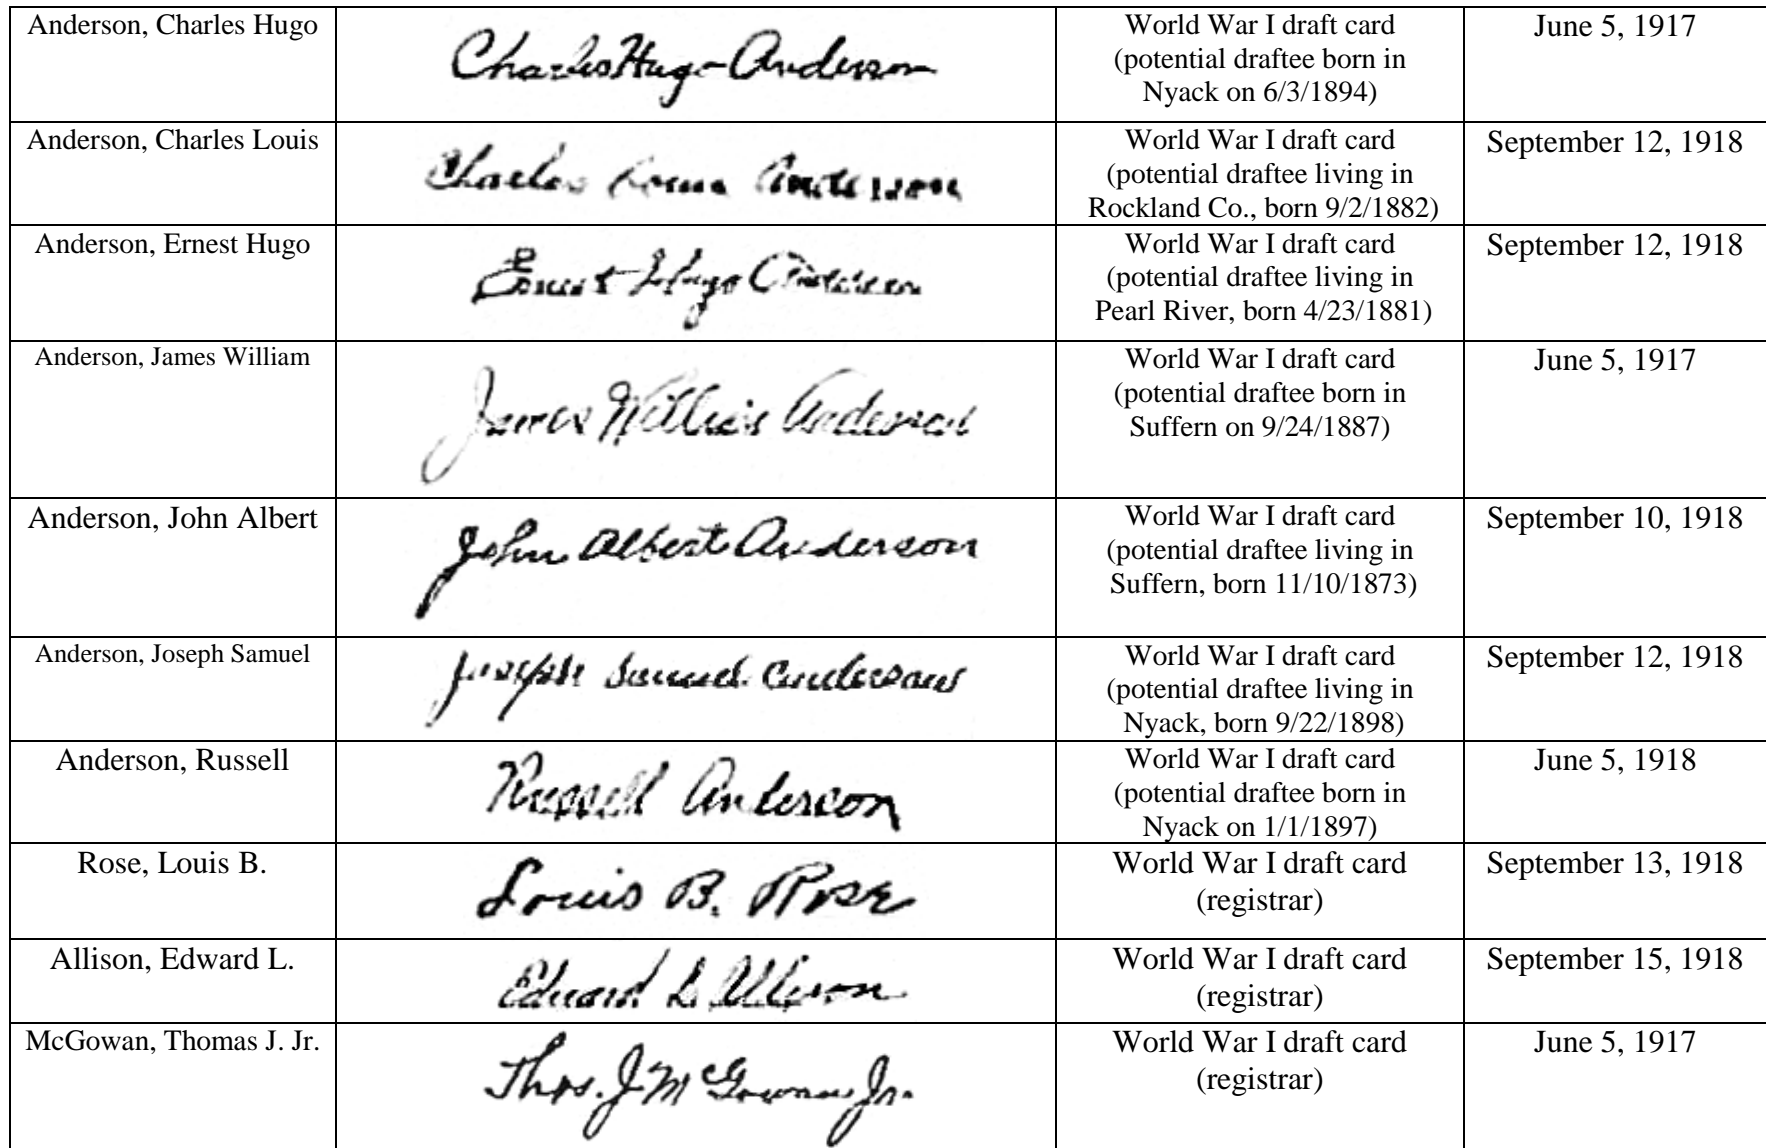 Anderson, Charles Hugo
Charles Hugo Anderson
World War I draft card
(potential draftee born in
Nyack on 6/3/1894)
June 5, 1917
Anderson, Charles Louis
Charles Louis Anderson
World War I draft card
(potential draftee living in
Rockland Co., born 9/2/1882)
September 12, 1918
Anderson, Ernest Hugo
Ernest Hugo Anderson
World War I draft card
(potential draftee living in
Pearl River, born 4/23/1881)
September 12, 1918
Anderson, James William
James William Anderson
World War I draft card
(potential draftee born in
Suffern on 9/24/1887)
June 5, 1917
Anderson, John Albert
John Albert Anderson
World War I draft card
(potential draftee living in
Suffern, born 11/10/1873)
September 10, 1918
Anderson, Joseph Samuel
Joseph Samuel Anderson
World War I draft card
(potential draftee living in
Nyack, born 9/22/1898)
September 12, 1918
Anderson, Russell
Russell Anderson
World War I draft card
(potential draftee born in
Nyack on 1/1/1897)
June 5, 1918
Rose, Louis B.
Louis B. Rose
World War I draft card
(registrar)
September 13, 1918
Allison, Edward L.
Edward L. Allison
World War I draft card
(registrar)
September 15, 1918
McGowan, Thomas J. Jr.
Thos. J McGowan Jr.
World War I draft card
(registrar)
June 5, 1917